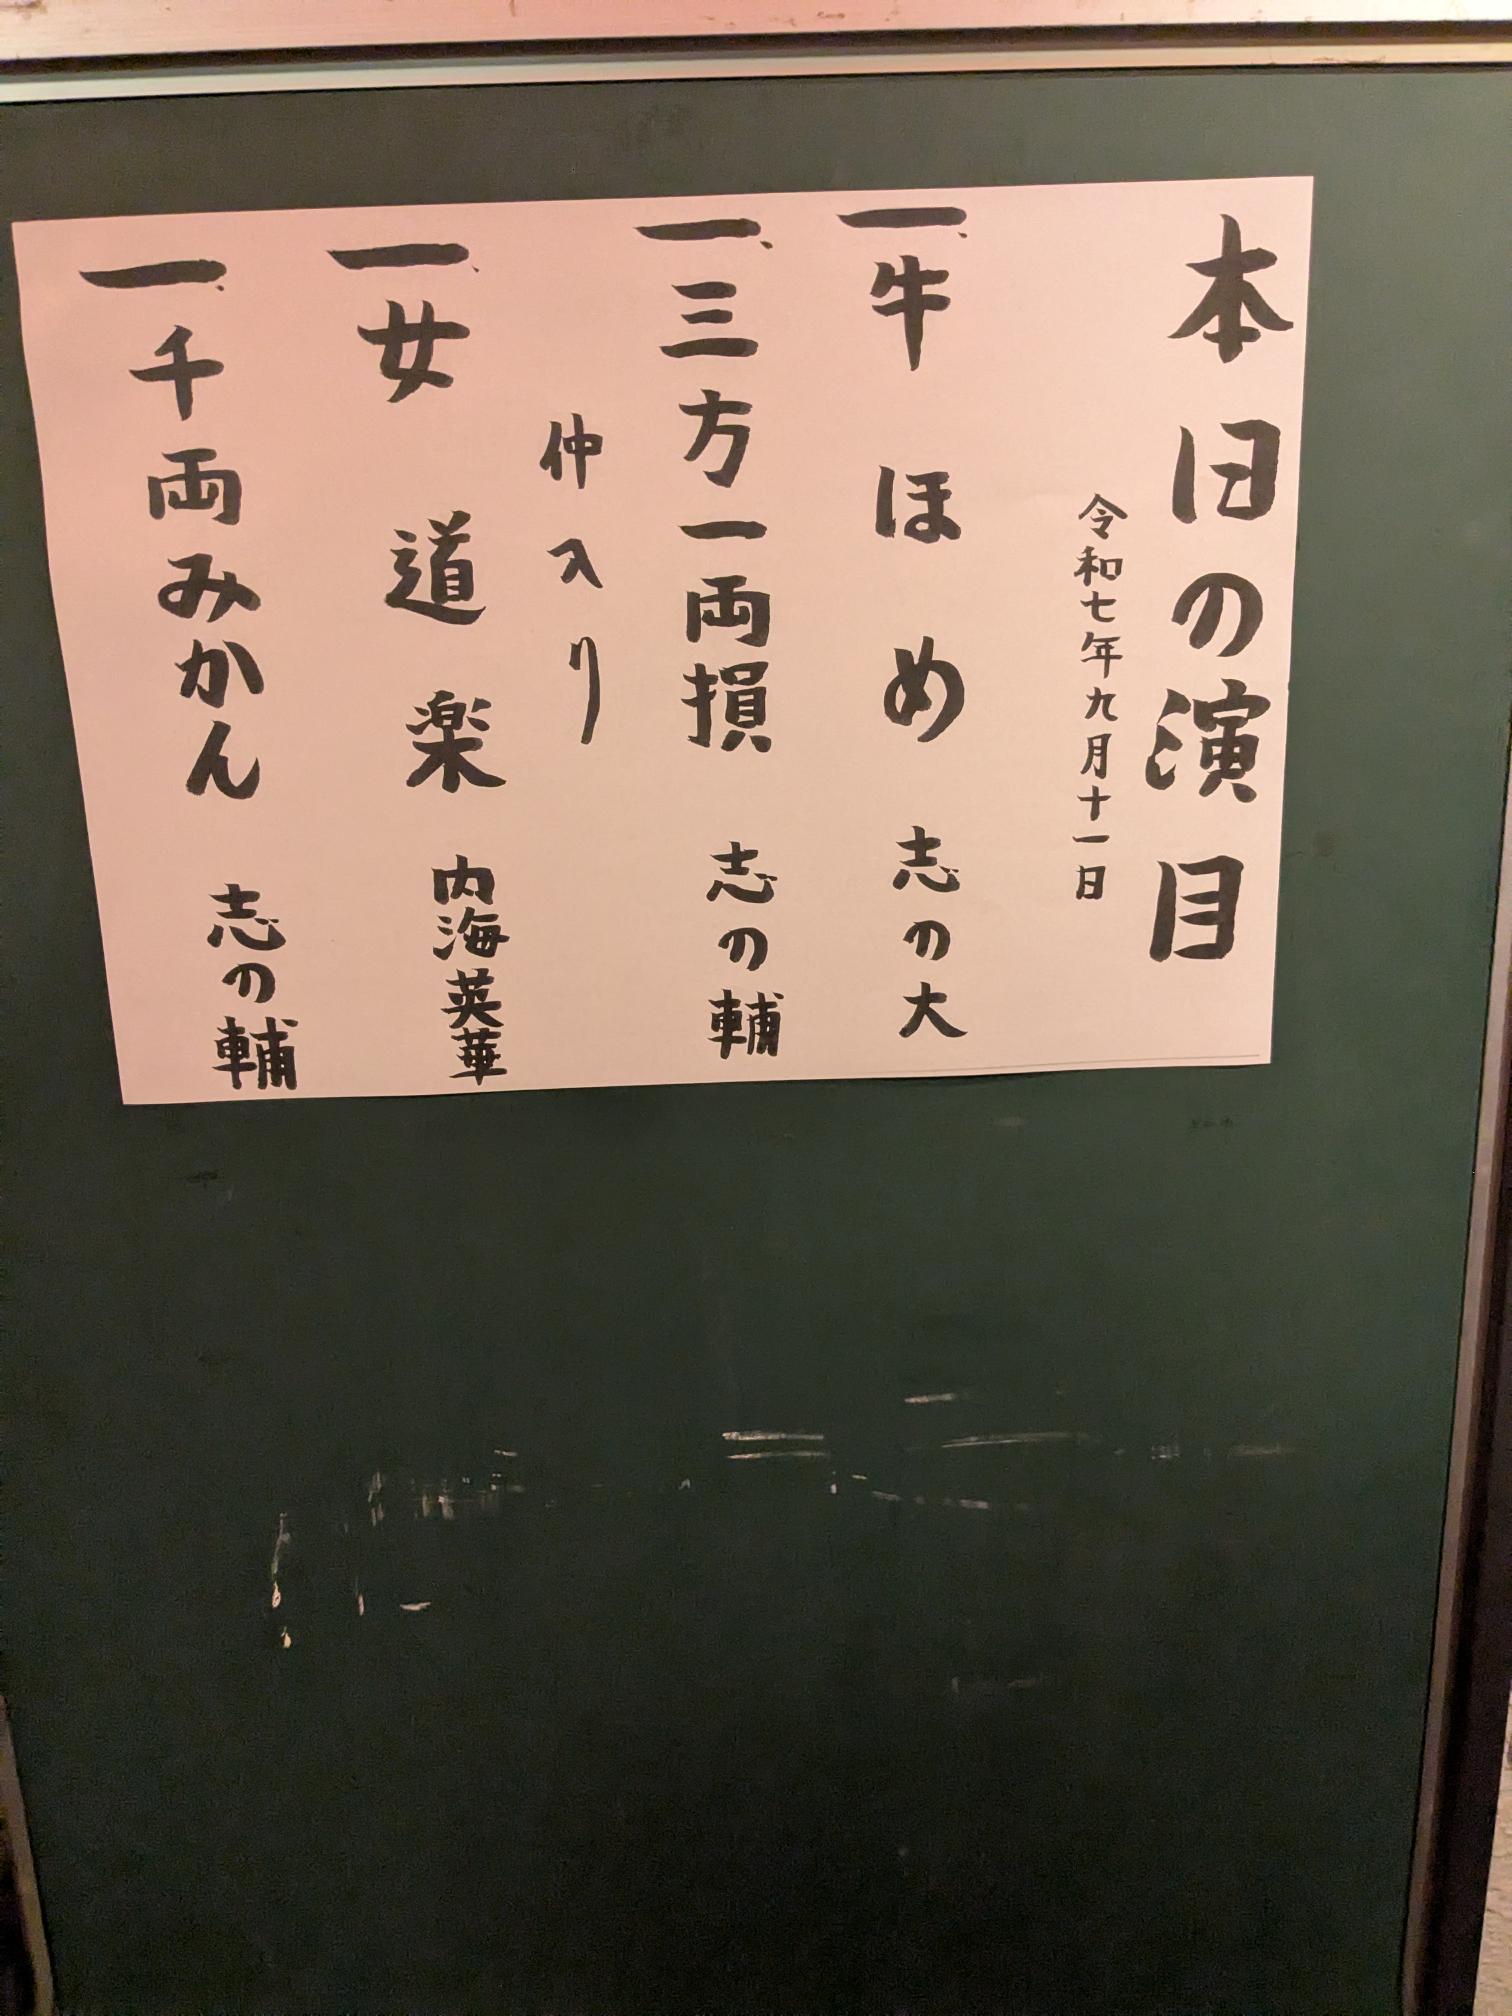 本日の演目
令和七年九月十一日
一、牛ほめ 志の大
一、三方一両損 志の輔
仲入り
一、女道楽 内海英華
一、千両みかん 志の輔